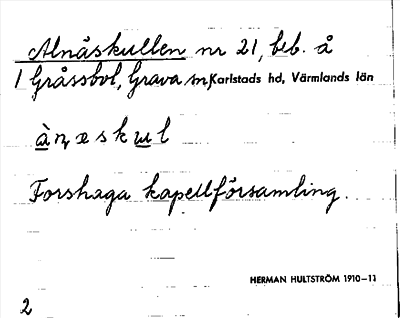 Alnäskullen nr 21, beb. å
1 Gråssbol, Grava sn, Karlstads hd, Värmlands län
àṇ, æ s k ɯ l
Forshaga kapellförsamling.
HERMAN HULTSTRÖM 1910–11
2